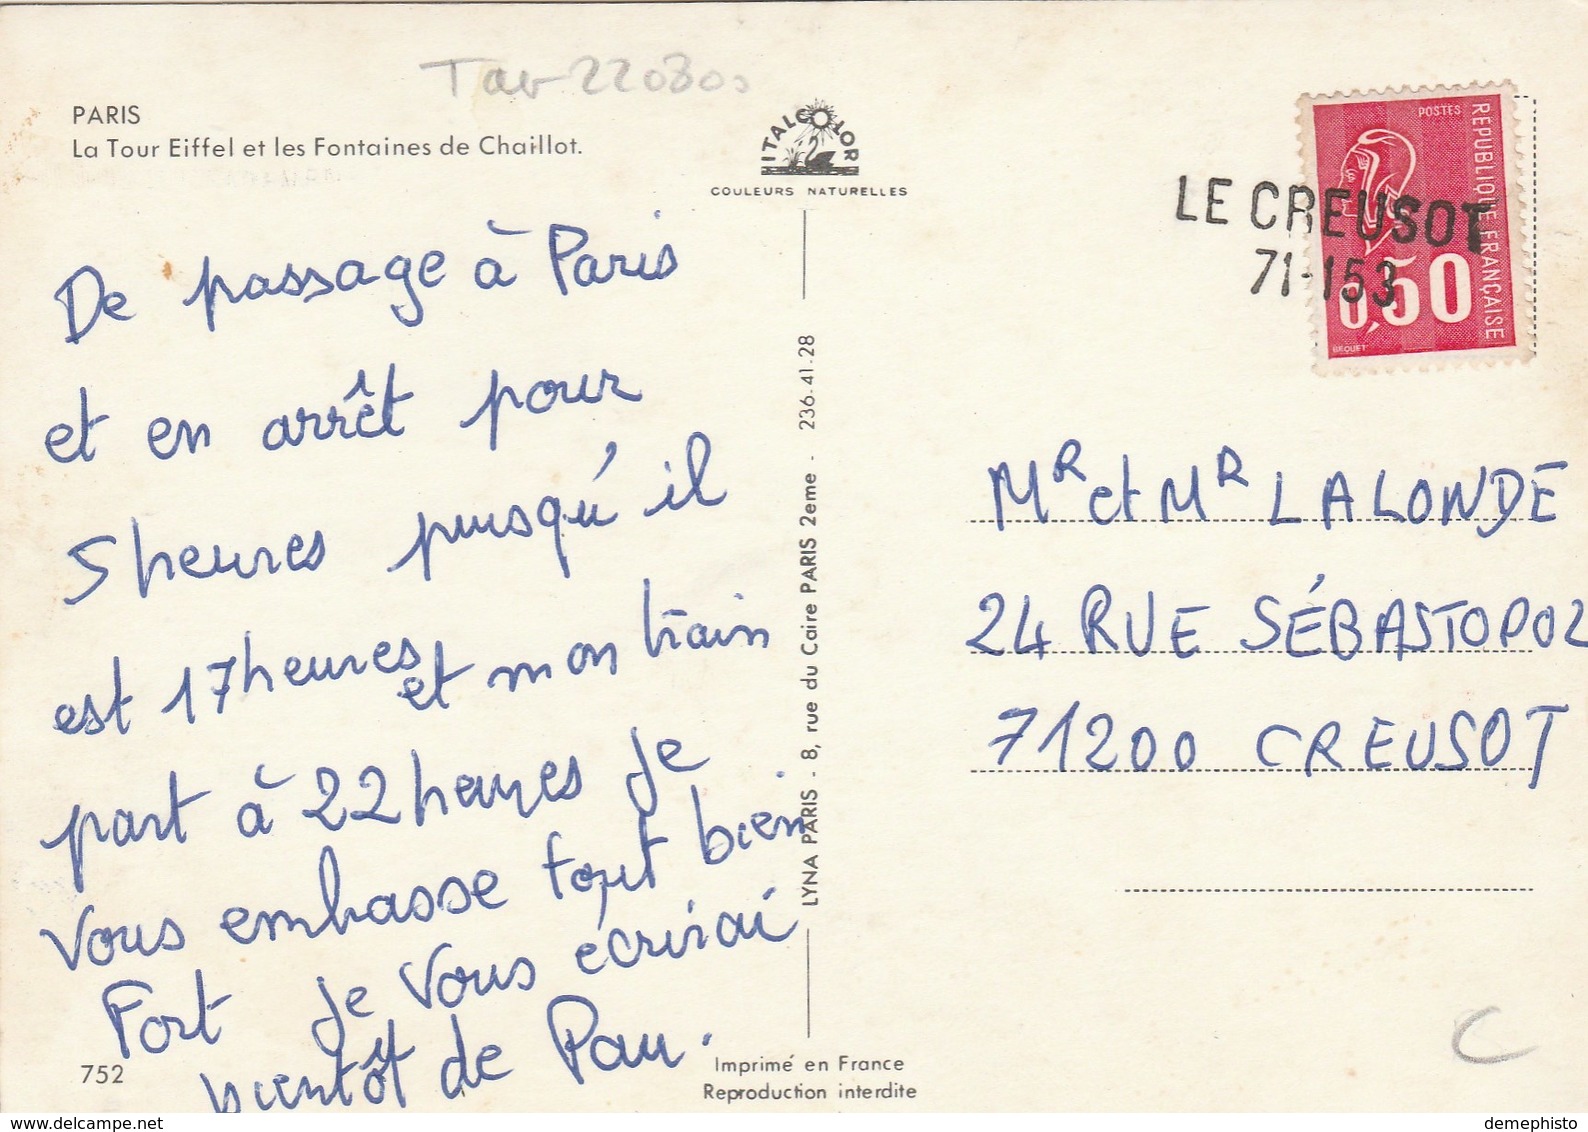 Tav 220800
PARIS
La Tour Eiffel et les Fontaines de Chaillot.
ITALCOLOR
2
COULEURS NATURELLES
De passage à Paris
et en arrêt pour
5 heures puisqu'il
est 17 heures et mon train
part à 22 heures je
vous embrasse tout bien
Fort je vous écrirai
bientôt de Pau.
752
LYNA PARIS - 8, rue du Caire PARIS 2eme - 236-41-28
Imprimé en France
Reproduction interdite
POSTES
REPUBLIQUE FRANÇAISE
0,50
BEQUET
LE CREUSOT
71-153
MR et MR LALONDE
24 RUE SÉBASTOPOL
71200 CREUSOT
C
www.delcampe.net
demephisto